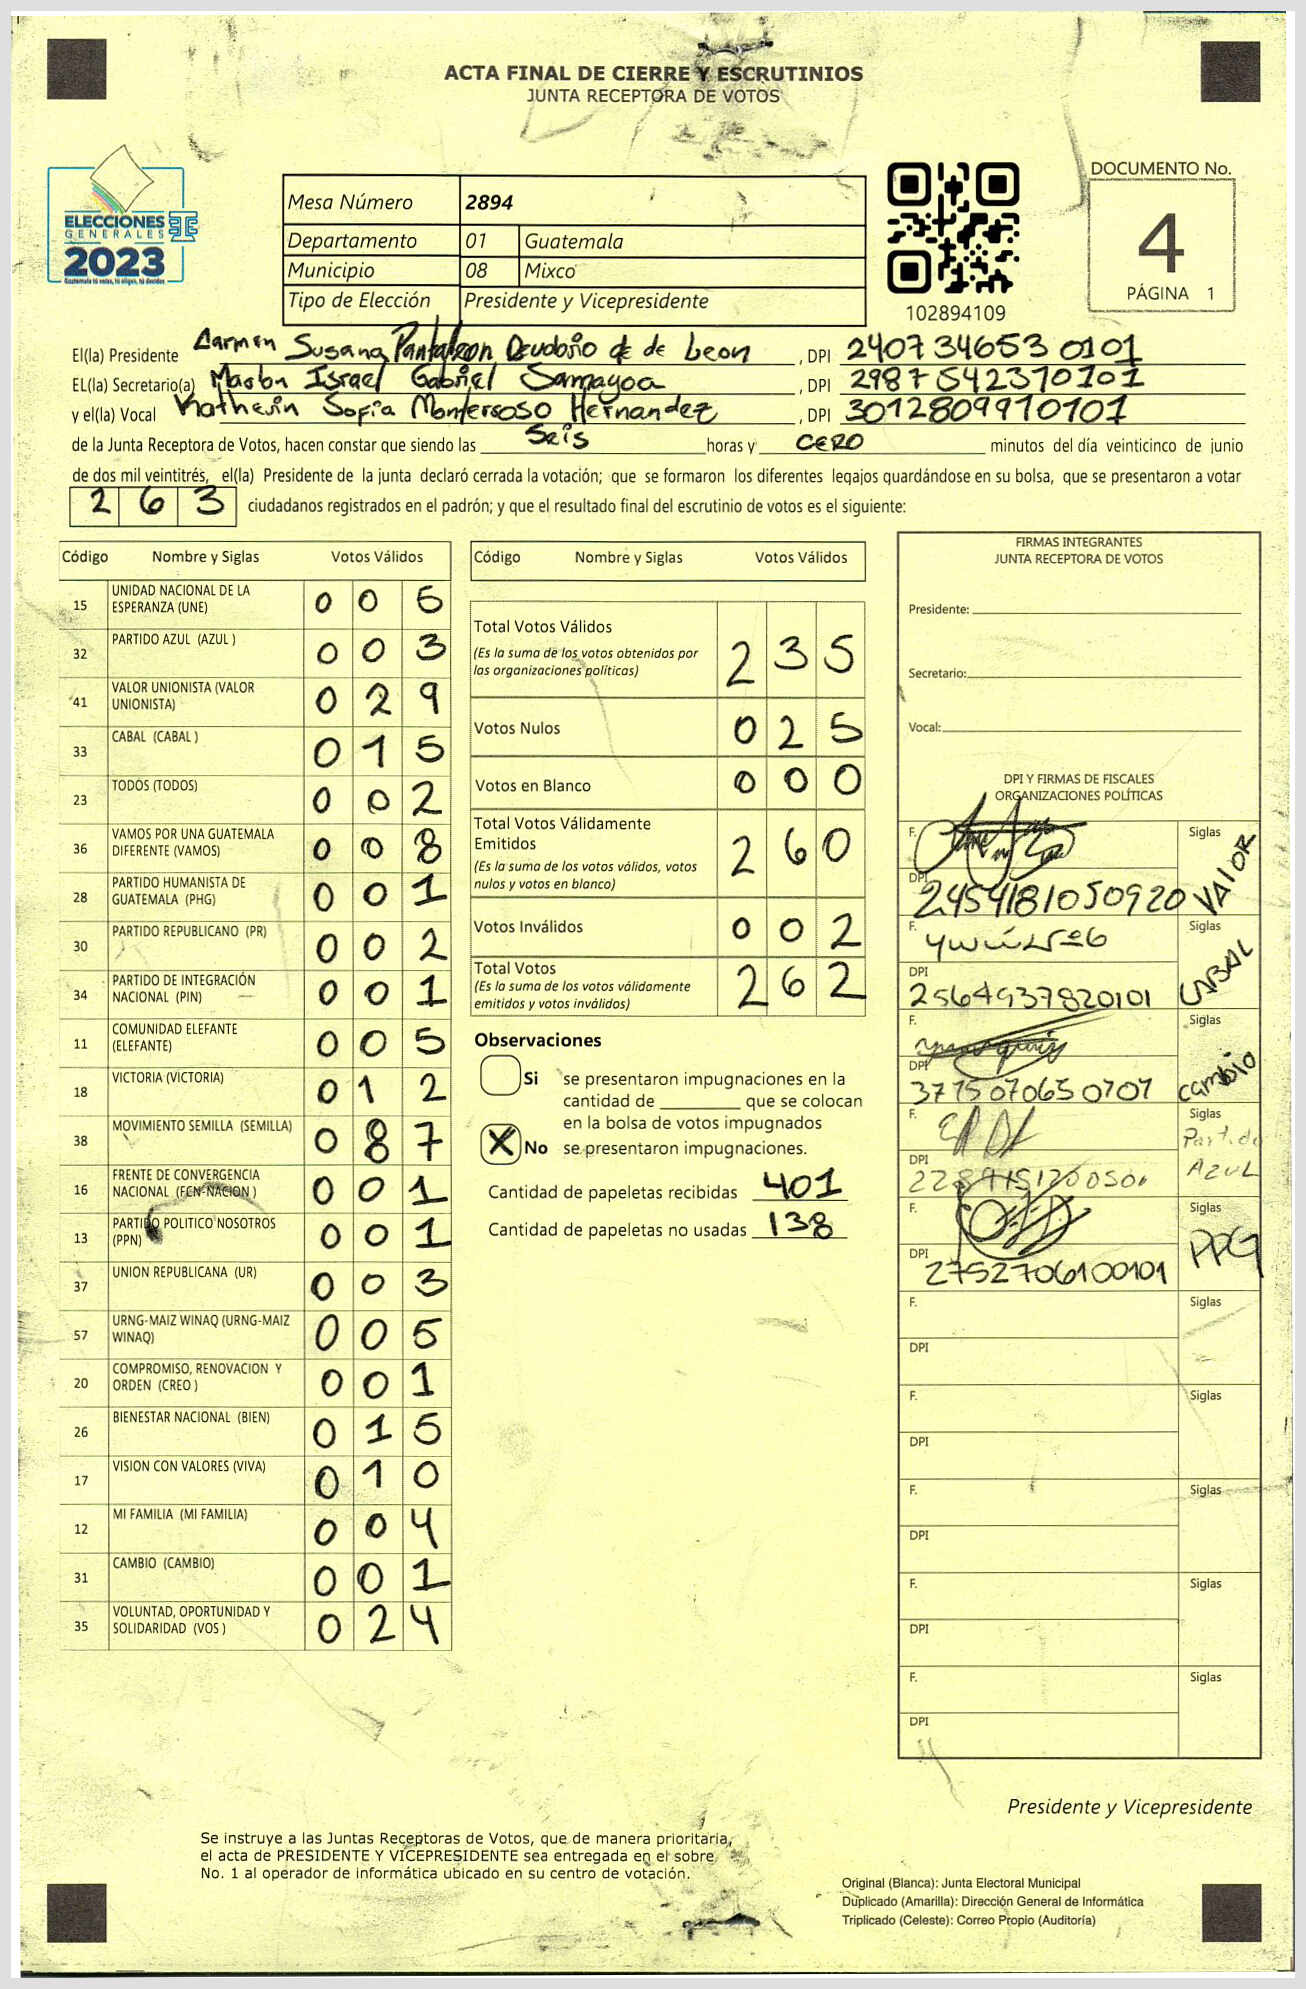 ACTA FINAL DE CIERRE Y ESCRUTINIOS
JUNTA RECEPTORA DE VOTOS
ELECCIONES
GENERALES
2023
Guatemala tú votas, tú eliges, tú decides
Mesa Número 2894
Departamento 01 Guatemala
Municipio 08 Mixco
Tipo de Elección Presidente y Vicepresidente
102894109
DOCUMENTO No.
4
PÁGINA 1
El(la) Presidente Carmen Susana Pantaleon de de Leon , DPI 240734653 0101
EL(la) Secretario(a) Israel Gabriel Samayoa , DPI 2987542370101
y el(la) Vocal Katherin Sofia Monterroso Hernandez , DPI 3012809910101
de la Junta Receptora de Votos, hacen constar que siendo las Seis horas y CERO minutos del día veinticinco de junio
de dos mil veintitrés, el(la) Presidente de la junta declaró cerrada la votación; que se formaron los diferentes legajos guardándose en su bolsa, que se presentaron a votar
263 ciudadanos registrados en el padrón; y que el resultado final del escrutinio de votos es el siguiente:
Código Nombre y Siglas Votos Válidos
15 UNIDAD NACIONAL DE LA ESPERANZA (UNE) 0 0 5
32 PARTIDO AZUL (AZUL ) 0 0 3
41 VALOR UNIONISTA (VALOR UNIONISTA) 0 2 9
33 CABAL (CABAL ) 0 1 5
23 TODOS (TODOS) 0 0 2
36 VAMOS POR UNA GUATEMALA DIFERENTE (VAMOS) 0 0 8
28 PARTIDO HUMANISTA DE GUATEMALA (PHG) 0 0 1
30 PARTIDO REPUBLICANO (PR) 0 0 2
34 PARTIDO DE INTEGRACIÓN NACIONAL (PIN) 0 0 1
11 COMUNIDAD ELEFANTE (ELEFANTE) 0 0 5
18 VICTORIA (VICTORIA) 0 1 2
38 MOVIMIENTO SEMILLA (SEMILLA) 0 8 7
16 FRENTE DE CONVERGENCIA NACIONAL (FCN-NACION ) 0 0 1
13 PARTIDO POLITICO NOSOTROS (PPN) 0 0 1
37 UNION REPUBLICANA (UR) 0 0 3
57 URNG-MAIZ WINAQ (URNG-MAIZ WINAQ) 0 0 5
20 COMPROMISO, RENOVACION Y ORDEN (CREO ) 0 0 1
26 BIENESTAR NACIONAL (BIEN) 0 1 5
17 VISION CON VALORES (VIVA) 0 1 0
12 MI FAMILIA (MI FAMILIA) 0 0 4
31 CAMBIO (CAMBIO) 0 0 1
35 VOLUNTAD, OPORTUNIDAD Y SOLIDARIDAD (VOS ) 0 2 4
Código Nombre y Siglas Votos Válidos
Total Votos Válidos 2 3 5
(Es la suma de los votos obtenidos por
las organizaciones políticas)
Votos Nulos 0 2 5
Votos en Blanco 0 0 0
Total Votos Válidamente
Emitidos 2 6 0
(Es la suma de los votos válidos, votos
nulos y votos en blanco)
Votos Inválidos 0 0 2
Total Votos 2 6 2
(Es la suma de los votos válidamente
emitidos y votos inválidos)
Observaciones
Si se presentaron impugnaciones en la
cantidad de ________ que se colocan
en la bolsa de votos impugnados
X No se presentaron impugnaciones.
Cantidad de papeletas recibidas 401
Cantidad de papeletas no usadas 138
FIRMAS INTEGRANTES
JUNTA RECEPTORA DE VOTOS
Presidente:
Secretario:
Vocal:
DPI Y FIRMAS DE FISCALES
ORGANIZACIONES POLÍTICAS
F. Siglas VALOR
DPI 2454181050920
F. Siglas CABAL
DPI 2564937820101
F. Siglas cambio
DPI 3775070650707
F. Siglas Partido AZUL
DPI
F. Siglas PPG
DPI 2752706100101
F. Siglas
DPI
F. Siglas
DPI
F. Siglas
DPI
F. Siglas
DPI
F. Siglas
DPI
Presidente y Vicepresidente
Se instruye a las Juntas Receptoras de Votos, que de manera prioritaria,
el acta de PRESIDENTE Y VICEPRESIDENTE sea entregada en el sobre
No. 1 al operador de informática ubicado en su centro de votación.
Original (Blanca): Junta Electoral Municipal
Duplicado (Amarilla): Dirección General de Informática
Triplicado (Celeste): Correo Propio (Auditoría)